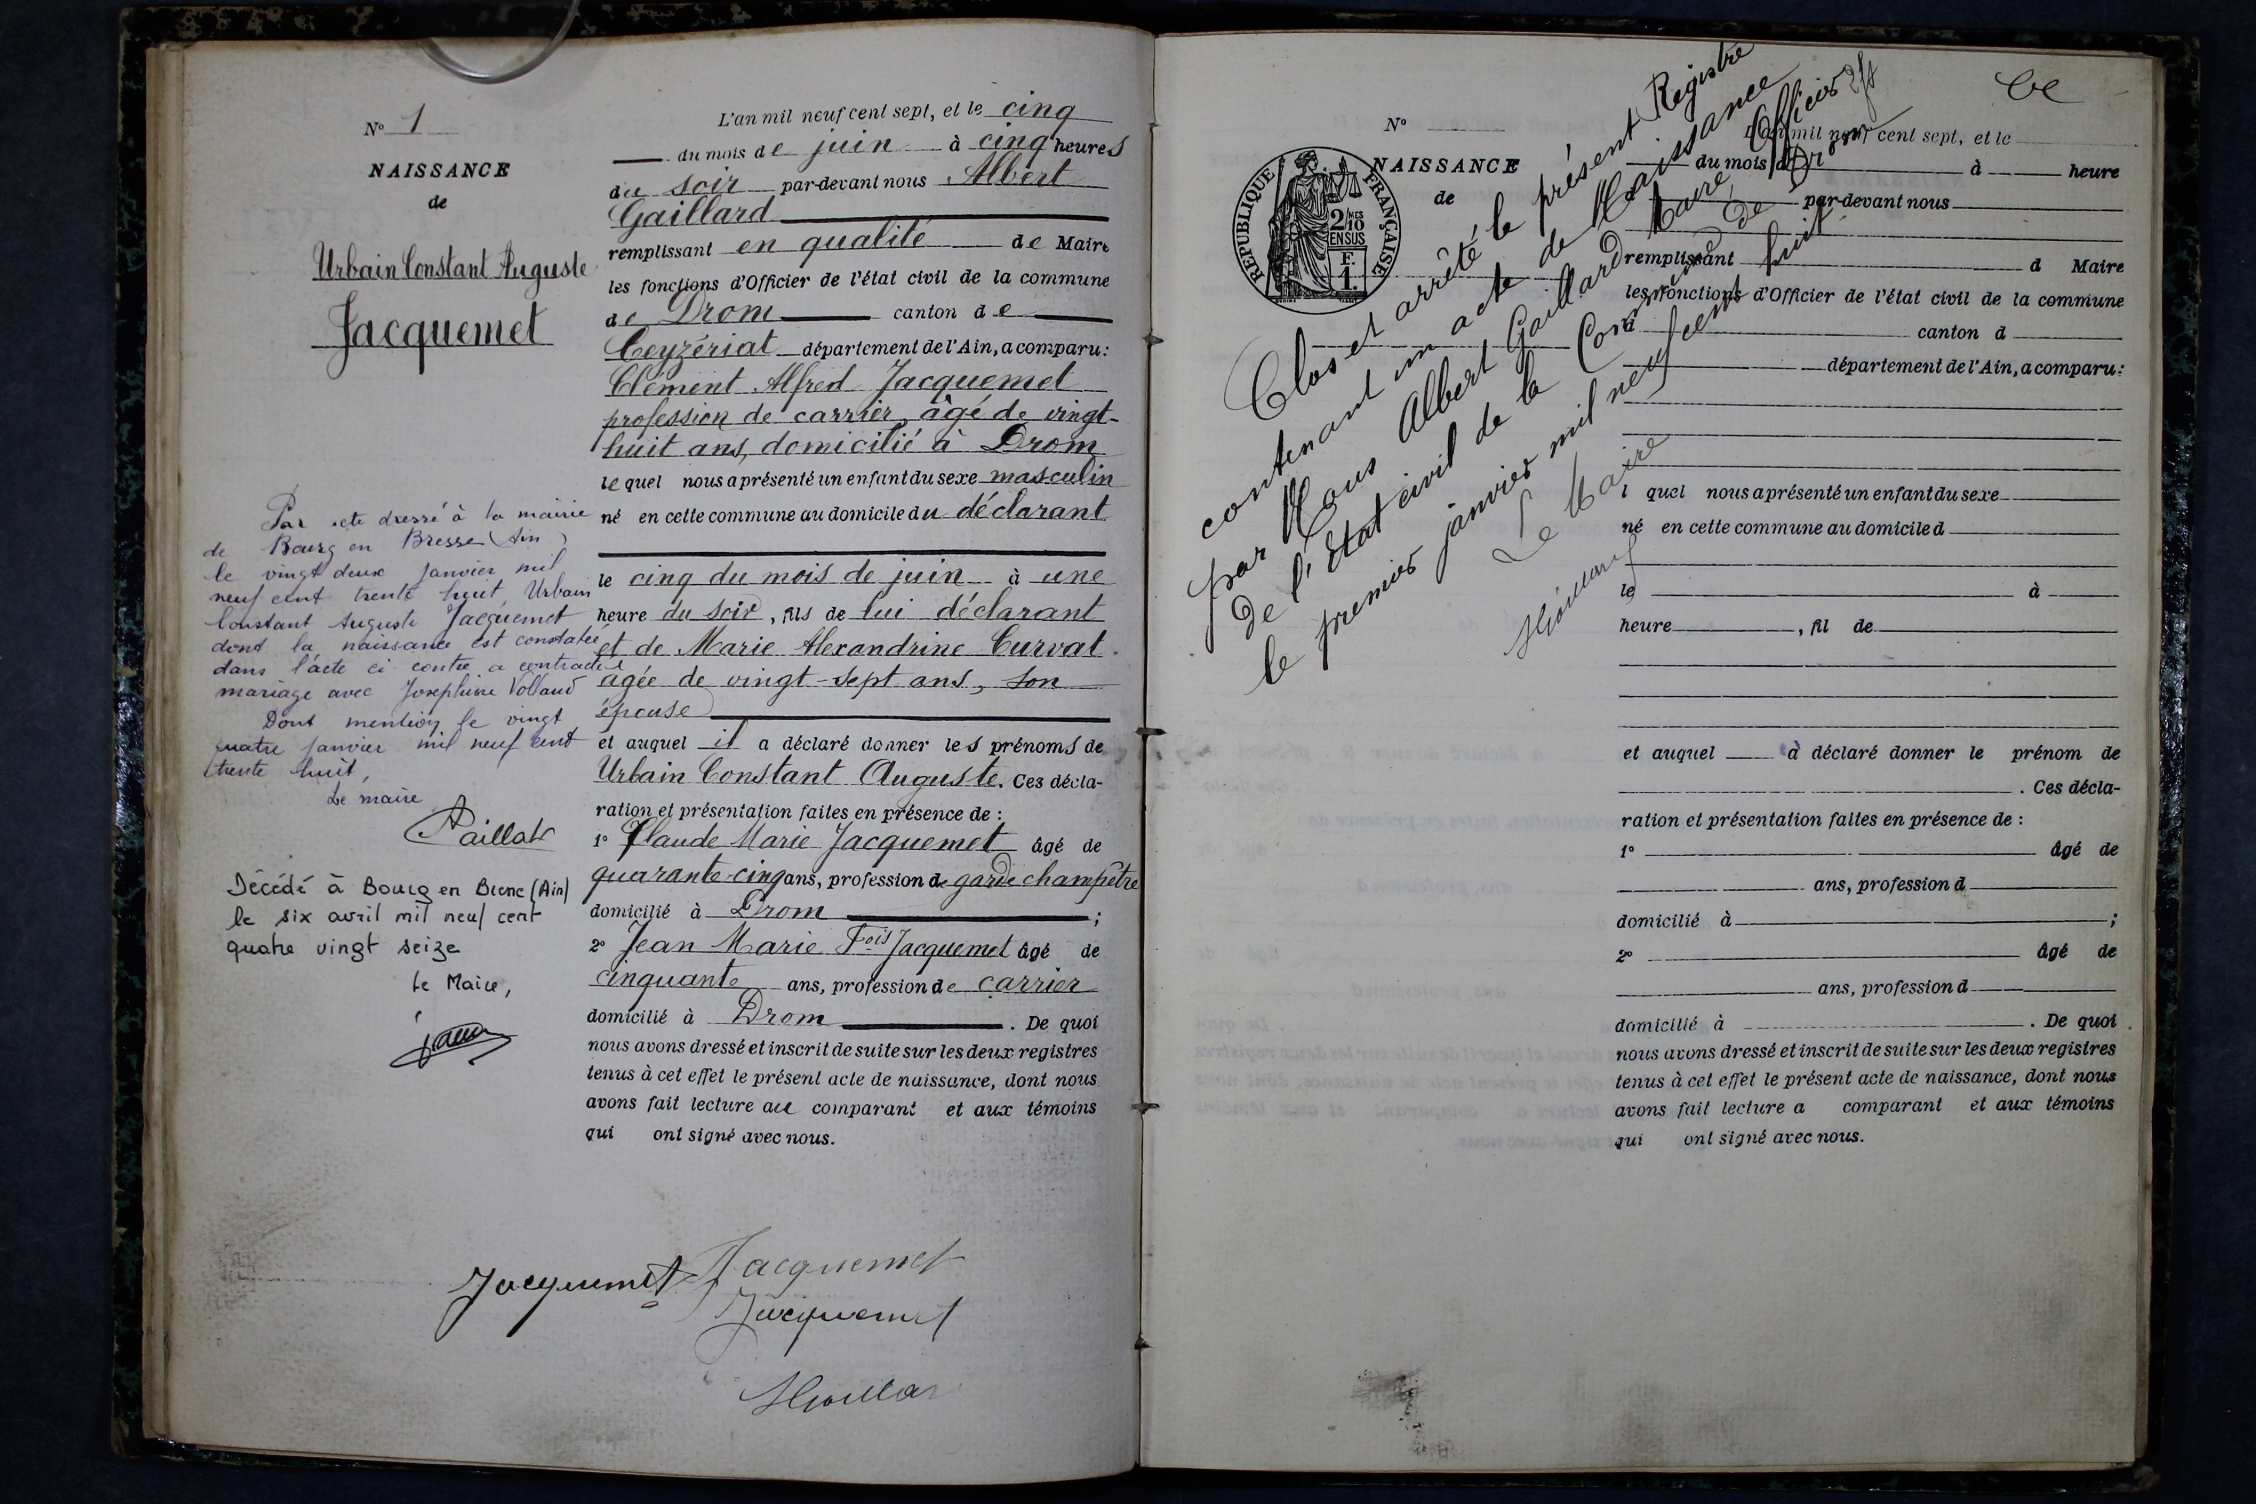 N° 1
NAISSANCE
de
Urbain Constant Auguste
Jacquemet
Par acte dressé à la mairie
de Bourg en Bresse (Ain)
le vingt deux janvier mil
neuf cent trente huit, Urbain
Constant Auguste Jacquemet
dont la naissance est constatée
dans l'acte ci contre a contracté
mariage avec Joséphine Volland
Dont mention le vingt
quatre janvier mil neuf cent
trente huit,
Le maire
Décédé à Bourg en Bresse (Ain)
le six avril mil neuf cent
quatre vingt seize
Le Maire,
L'an mil neuf cent sept, et le cinq
du mois de juin à cinq heures
du soir par-devant nous Albert
Gaillard
remplissant en qualité de Maire
les fonctions d'Officier de l'état civil de la commune
de Drom canton de
Ceyzériat département de l'Ain, a comparu:
Clément Alfred Jacquemet
profession de carrier, âgé de vingt-
huit ans, domicilié à Drom
lequel nous a présenté un enfant du sexe masculin
né en cette commune au domicile du déclarant
le cinq du mois de juin à une
heure du soir, fils de lui déclarant
et de Marie Alexandrine Curvat
agée de vingt-sept ans, son
épouse
et auquel il a déclaré donner les prénoms de
Urbain Constant Auguste. Ces décla-
ration et présentation faites en présence de :
1° Claude Marie Jacquemet âgé de
quarante-cinq ans, profession de garde champêtre
domicilié à Drom ;
2° Jean Marie Fois Jacquemet âgé de
cinquante ans, profession de carrier
domicilié à Drom . De quoi
nous avons dressé et inscrit de suite sur les deux registres
tenus à cet effet le présent acte de naissance, dont nous
avons fait lecture au comparant et aux témoins
qui ont signé avec nous.
Jacquemet Jacquemet
Jacquemet
N°
NAISSANCE
de
RÉPUBLIQUE FRANÇAISE
2/10MES
EN SUS
F.
1.
Clos et arrêté le présent Registre
contenant un acte de Naissance
par Nous Albert Gaillard Maire, Officier
de l'État civil de la Commune de Drom
le premier janvier mil neuf cent huit.
Le Maire
L'an mil neuf cent sept, et le
du mois d à heure
par-devant nous
remplissant d Maire
les fonctions d'Officier de l'état civil de la commune
d canton d
département de l'Ain, a comparu:
l quel nous a présenté un enfant du sexe
né en cette commune au domicile d
le à
heure , fil de
et auquel a déclaré donner le prénom de
. Ces décla-
ration et présentation faites en présence de :
1° âgé de
ans, profession d
domicilié à ;
2° âgé de
ans, profession d
domicilié à . De quoi
nous avons dressé et inscrit de suite sur les deux registres
tenus à cet effet le présent acte de naissance, dont nous
avons fait lecture a comparant et aux témoins
qui ont signé avec nous.